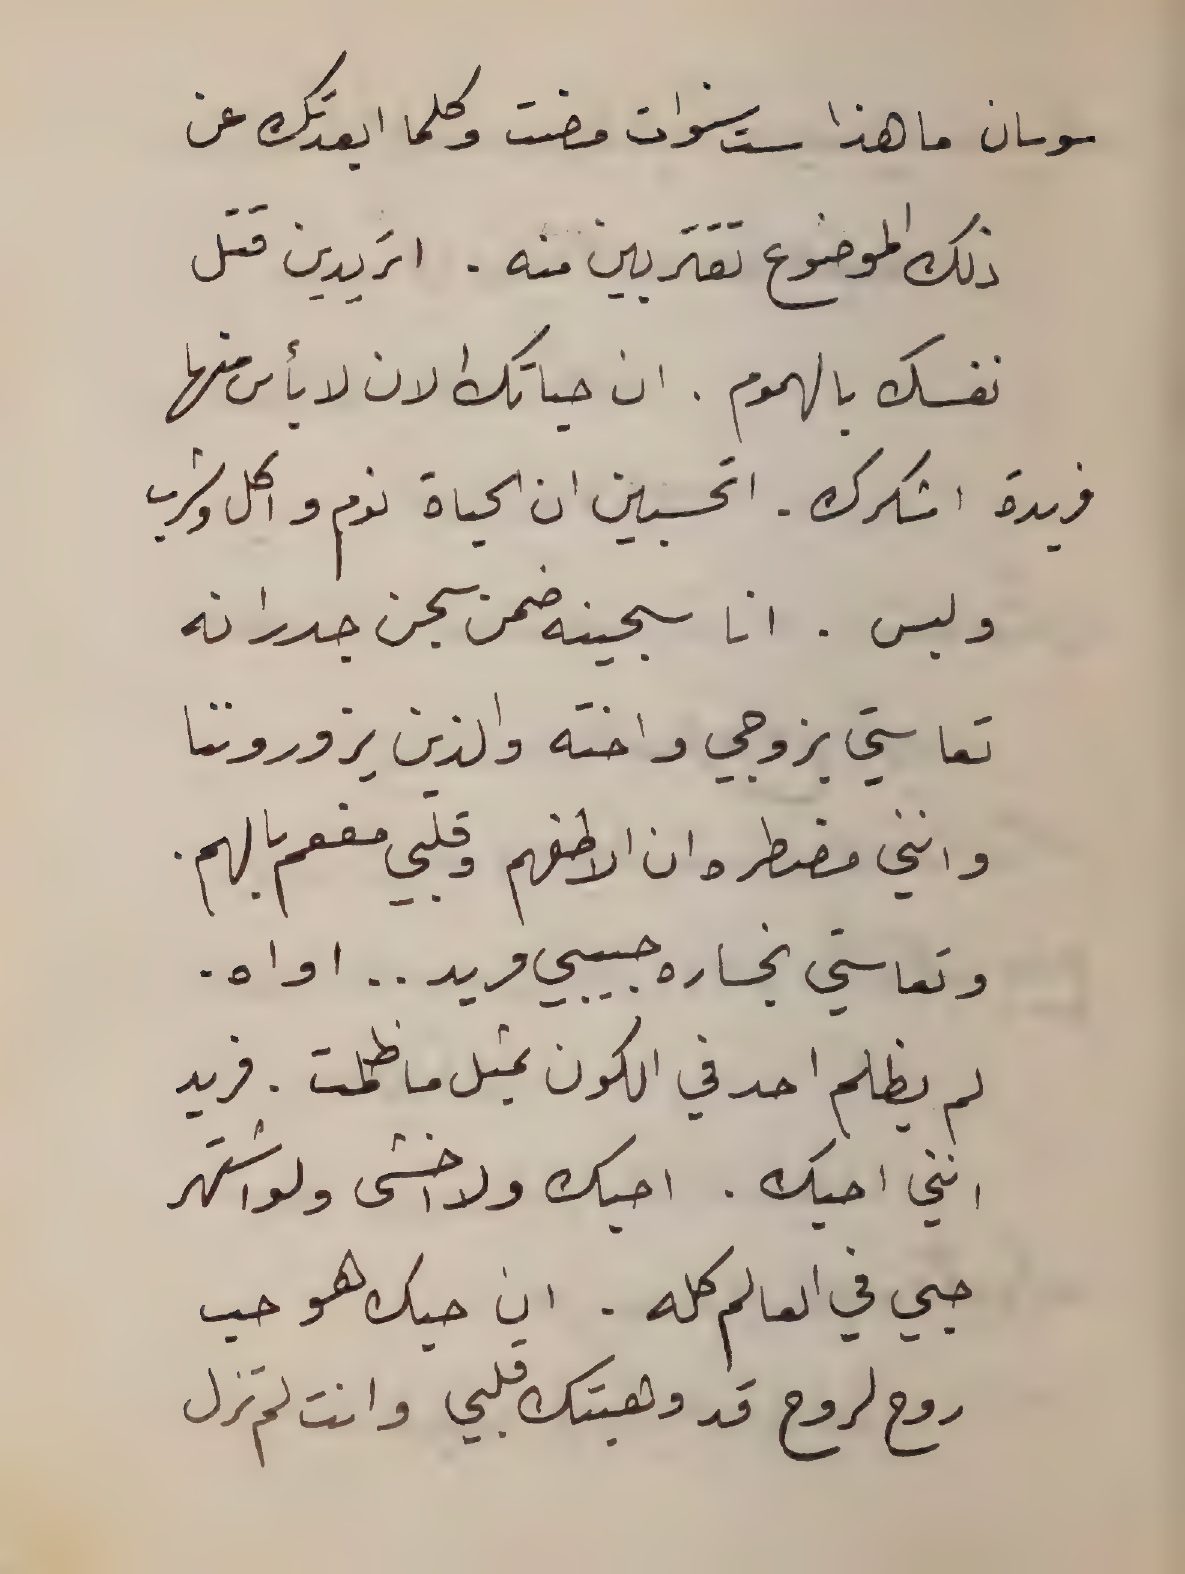 سوسان ما هذا ست سنوات مضت وكلما ابعدتك عن
ذلك الموضوع تقتربين منه . اتريدين قتل
نفسك بالهموم . ان حياتك الان لا بأس منها
فريدة اشكرك . اتحسبين ان الحياة نوم واكل وشرب
ولبس . انا سجينه ضمن سجن جدرانه
تعاستي بزوجي واخته والذين يزوروننا
وانني مضطره ان الاطفهم وقلبي مفعم بالهم .
وتعاستي بخساره حبيبي فريد .. اواه .
لم يظلم احد في الكون بمثل ما ظلمت . فريد
انني احبك . احبك ولا اخشى ولو اشتهر
حبي في العالم كله . ان حبك هو حب
روح لروح قد وهبتك قلبي وانت لم تزل